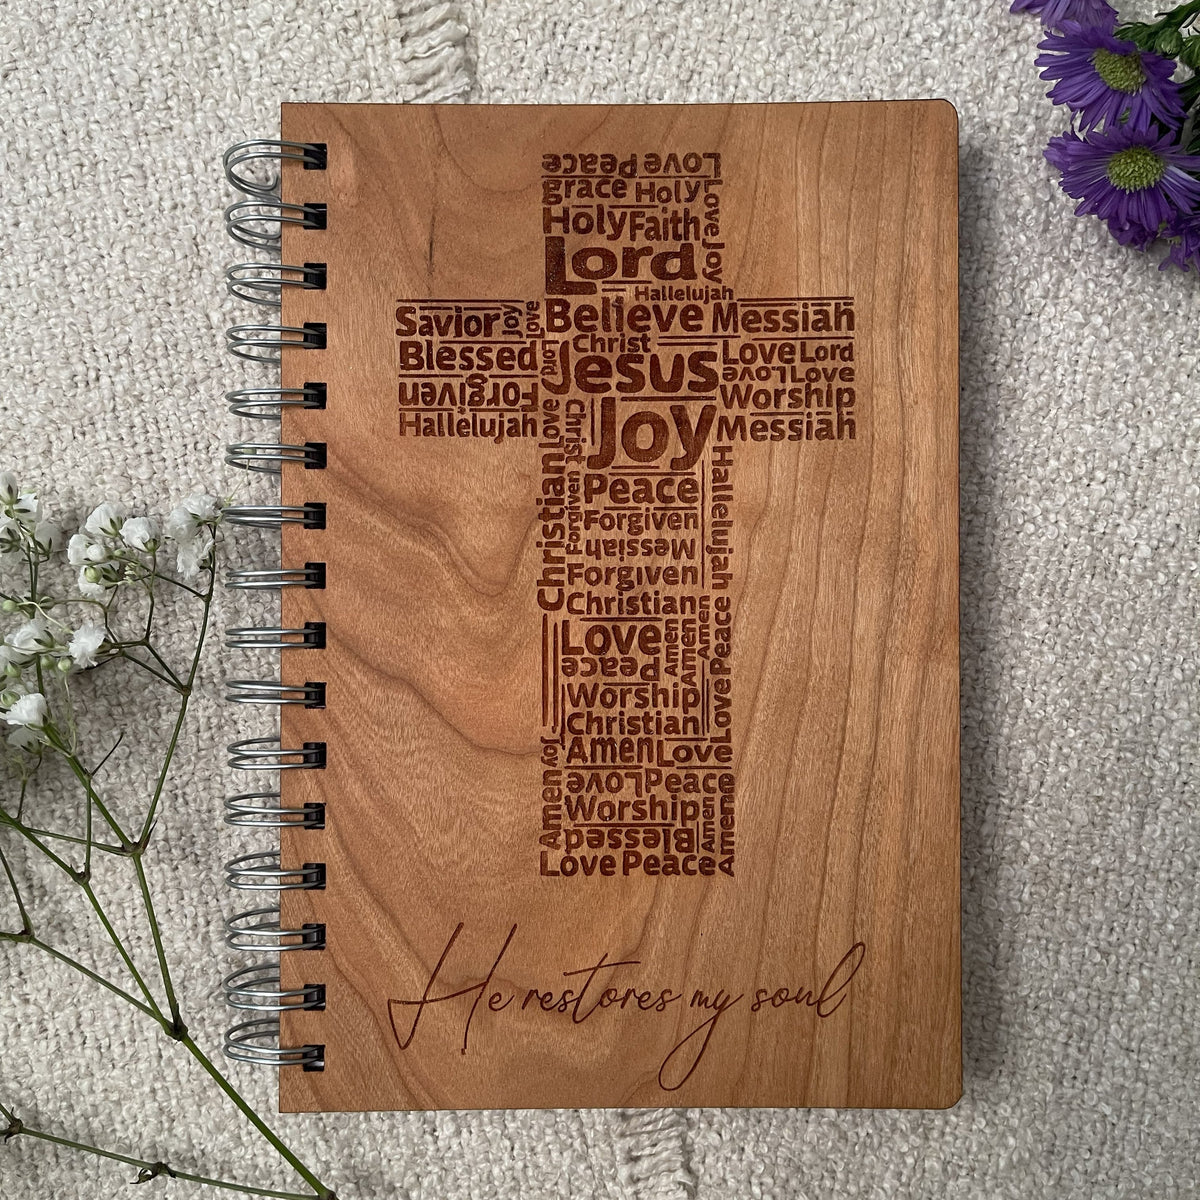 Love Peace
grace Holy Love
Holy Faith Joy
Lord
Hallelujah
Savior Joy Love Believe Messiah
Christ
Blessed Lord Jesus Love Lord
Love Love
Forgiven Worship
Hallelujah Love Christ Joy Messiah
Christian Forgiven Peace Hallelujah
Forgiven
Messiah
Forgiven
Christian
Love Amen Amen Amen Peace
Peace
Worship Love
Christian
Joy Amen Love
Amen Love Peace
Worship Amen Amen
Blessed
Love Peace
He restores my soul